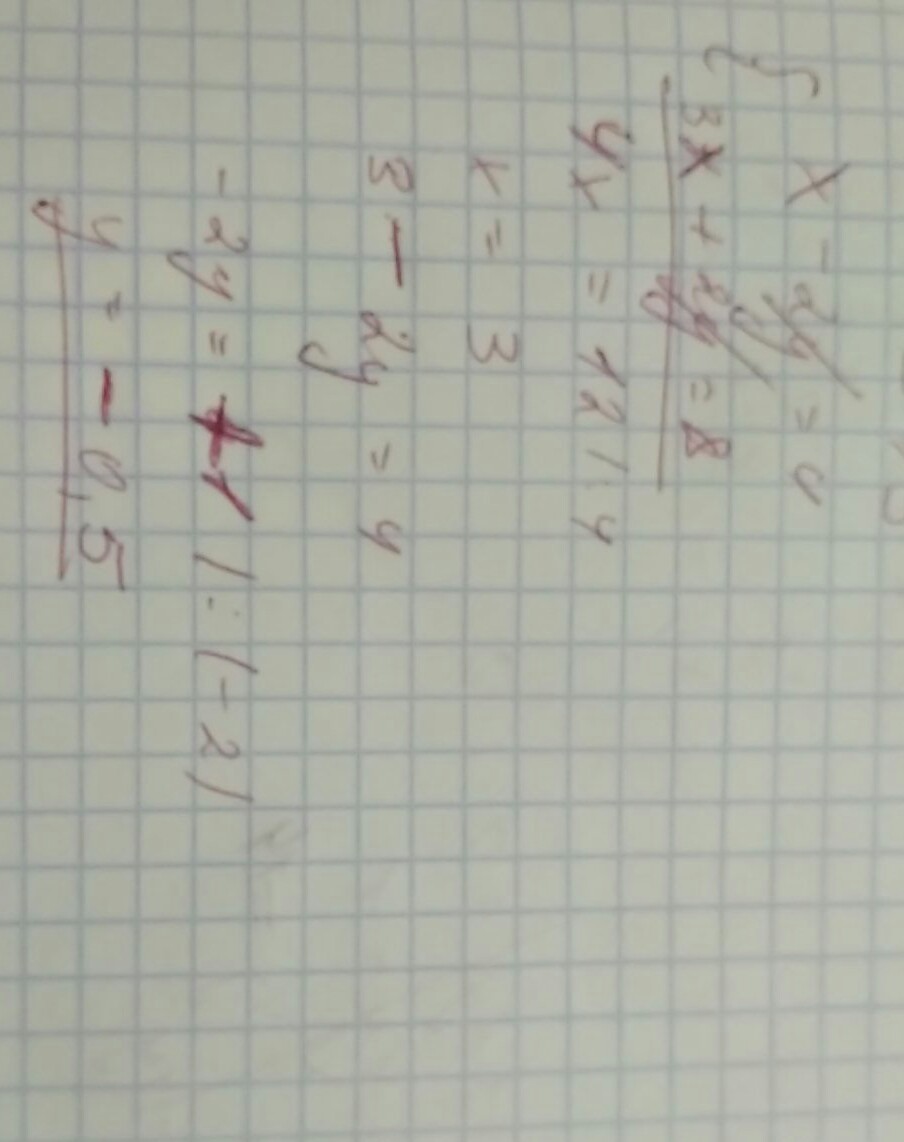 { x - 2y = 4
3x + 2y = 8
4x = 12 /:4
x = 3
3 - 2y = 4
-2y = +1 /:(-2)
y = -0,5